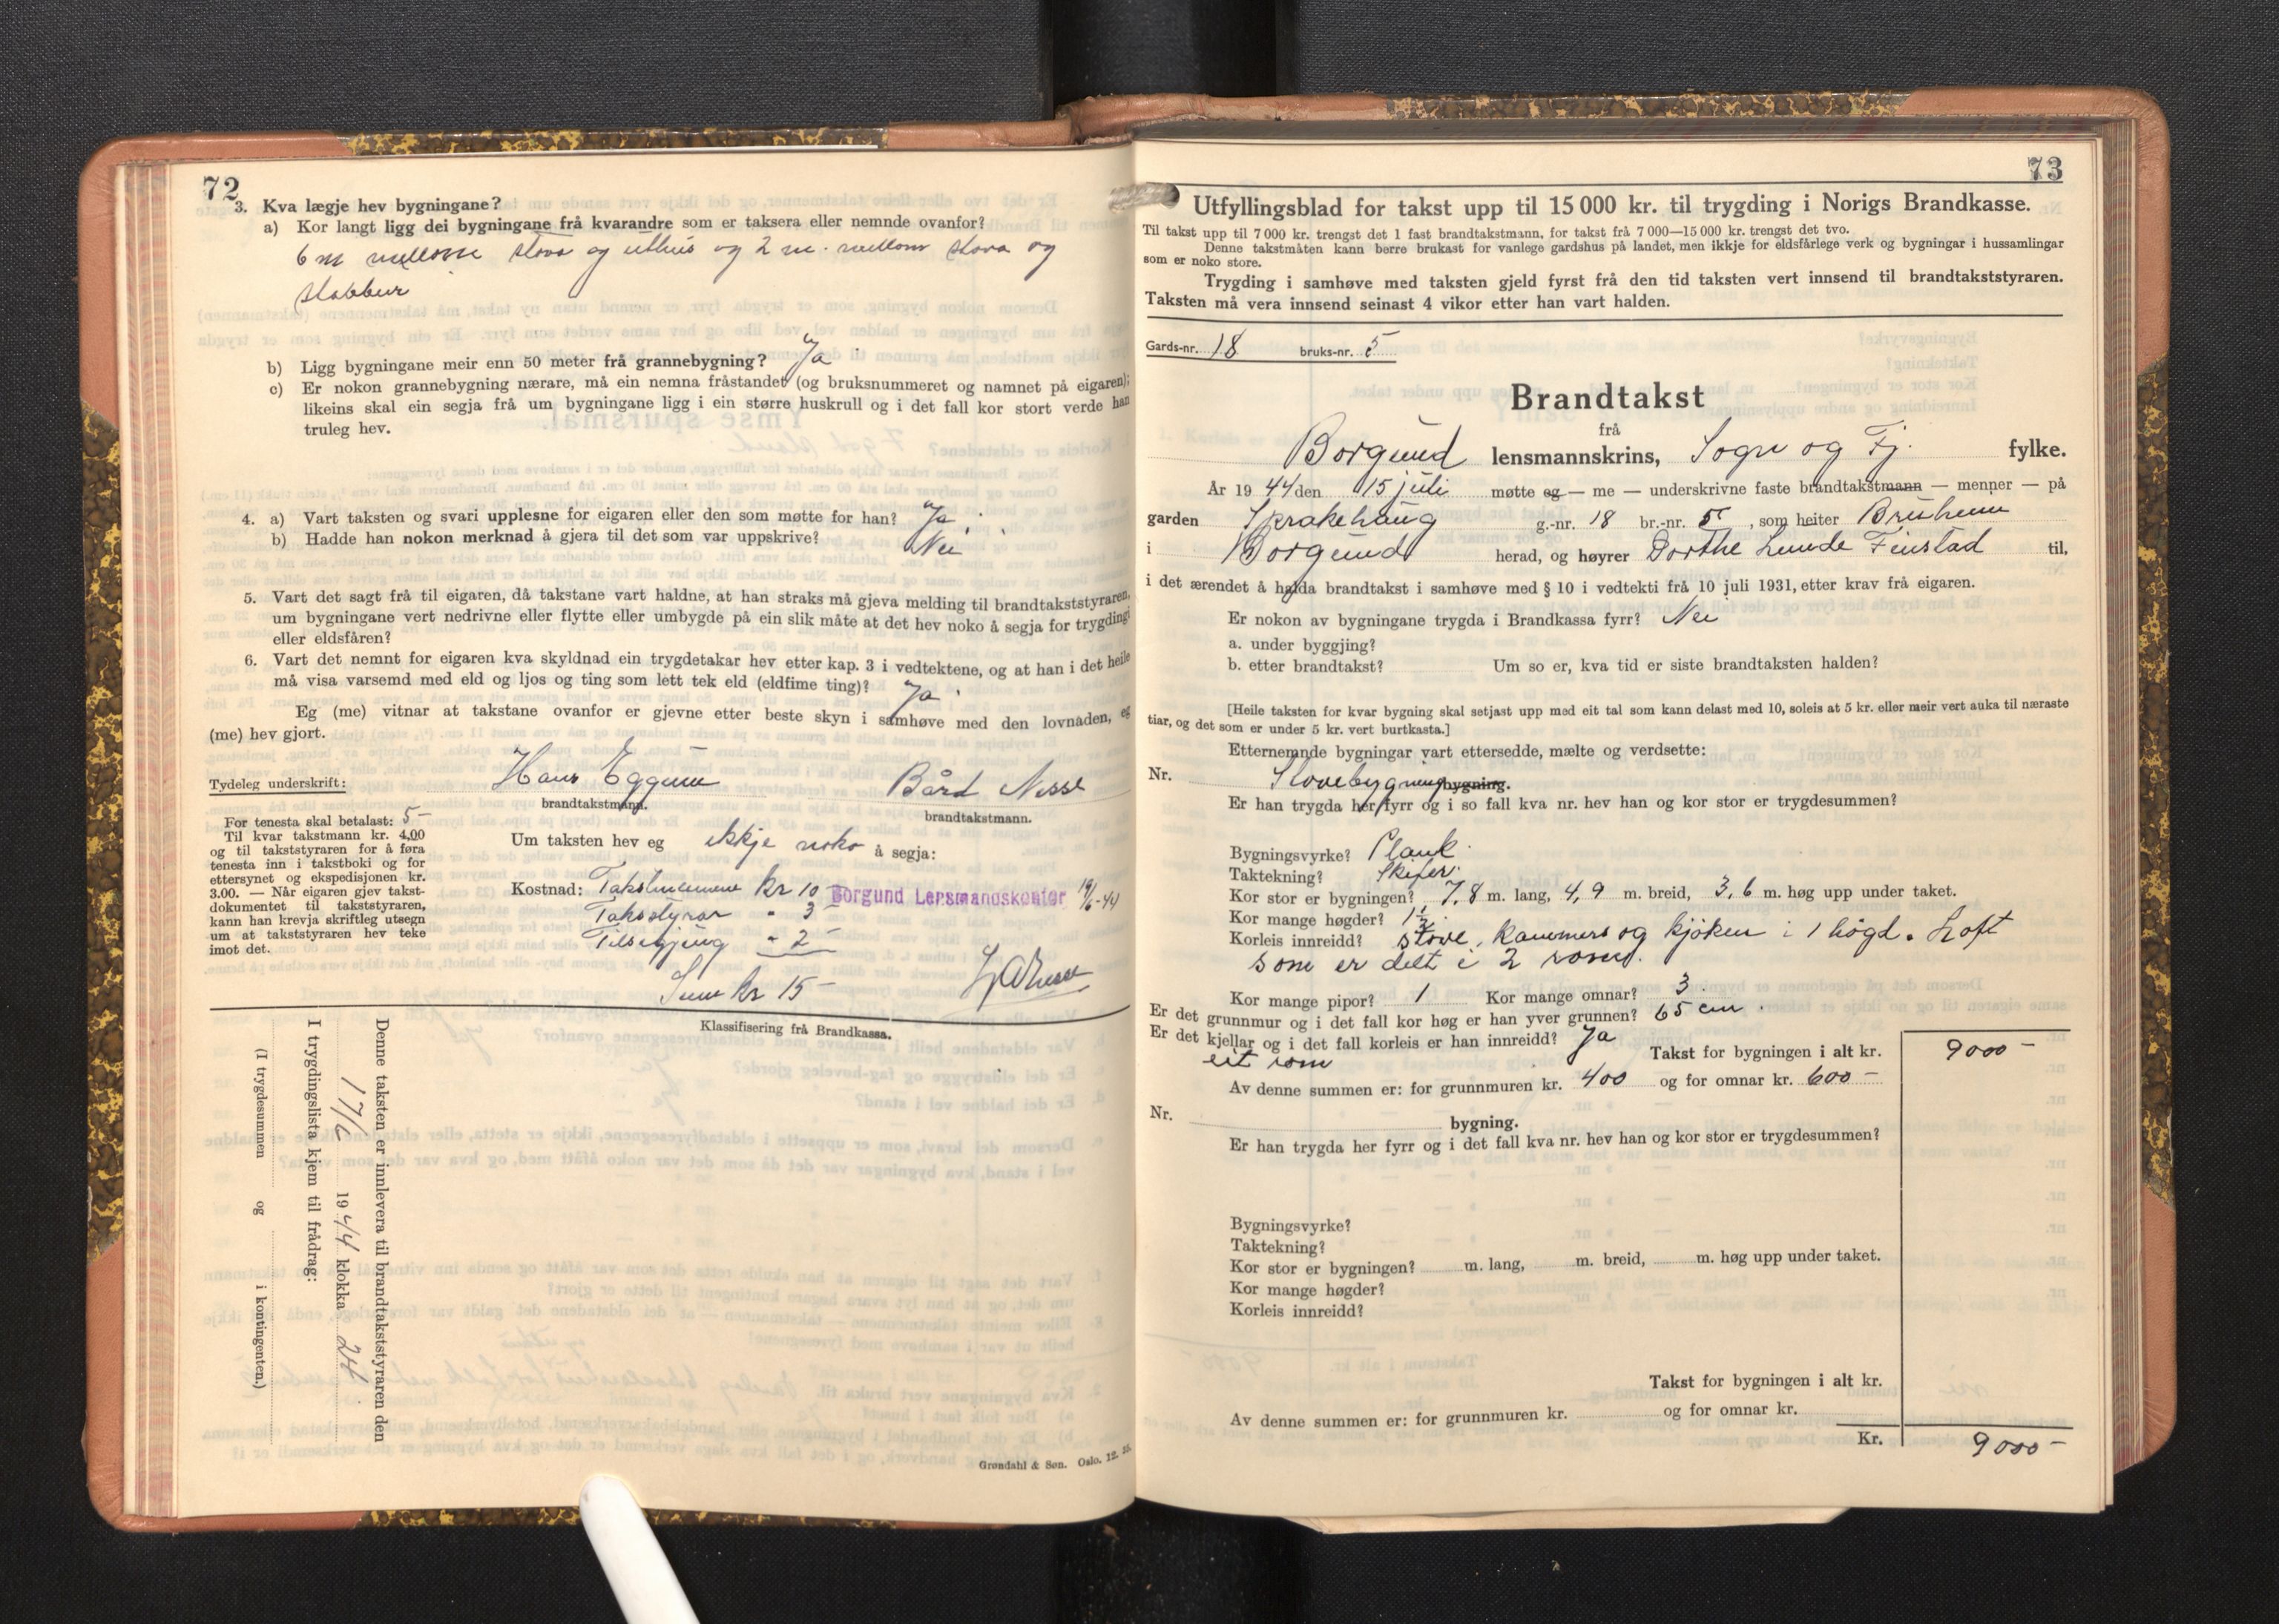 72
3. Kva lægje hev bygningane?
a) Kor langt ligg dei bygningane frå kvarandre som er taksera eller nemnde ovanfor?
6 m mellom stova og uthus og 2 m. mellom stova og
stabbur
b) Ligg bygningane meir enn 50 meter frå grannebygning? Ja
c) Er nokon grannebygning nærare, må ein nemna fråstandet (og bruksnummeret og namnet på eigaren);
likeins skal ein segja frå um bygningane ligg i ein større huskrull og i det fall kor stort verde han
truleg hev.
4. a) Vart taksten og svari upplesne for eigaren eller den som møtte for han? Ja.
b) Hadde han nokon merknad å gjera til det som var uppskrive? Nei
5. Vart det sagt frå til eigaren, då takstane vart haldne, at han straks må gjeva melding til brandtakststyraren,
um bygningane vert nedrivne eller flytte eller umbygde på ein slik måte at det hev noko å segja for trygdingi
eller eldsfåren?
6. Vart det nemnt for eigaren kva skyldnad ein trygdetakar hev etter kap. 3 i vedtektene, og at han i det heile
må visa varsemd med eld og ljos og ting som lett tek eld (eldfime ting)? Ja.
Eg (me) vitnar at takstane ovanfor er gjevne etter beste skyn i samhøve med den lovnaden, eg
(me) hev gjort.
Tydeleg underskrift: Hans Eggum Bård Nesse
brandtakstmann. brandtakstmann.
For tenesta skal betalast: 5-
Til kvar takstmann kr. 4,00
og til takststyraren for å føra
tenesta inn i takstboki og for
ettersynet og ekspedisjonen kr.
3.00. — Når eigaren gjev takst-
dokumentet til takststyraren,
kann han krevja skriftleg utsegn
um at takststyraren hev teke
imot det.
Um taksten hev eg ikkje noko å segja:
Kostnad: Takstmennene kr 10 -
Borgund Lensmandskontor 19/6-44
Takststyrar " 3 -
Tilsegjing " 2 -
Sum kr 15 -
Klassifisering frå Brandkassa.
Denne taksten er innlevera til brandtakststyraren den
17/6 1944 klokka 24
I trygdingslista kjem til frådrag:
(I trygdesummen og i kontingenten.)
Grøndahl & Søn. Oslo. 12. 35.
73
Utfyllingsblad for takst upp til 15 000 kr. til trygding i Norigs Brandkasse.
Til takst upp til 7 000 kr. trengst det 1 fast brandtakstmann, for takst frå 7 000—15 000 kr. trengst det tvo.
Denne takstmåten kann berre brukast for vanlege gardshus på landet, men ikkje for eldsfårlege verk og bygningar i hussamlingar
som er noko store.
Trygding i samhøve med taksten gjeld fyrst frå den tid taksten vert innsend til brandtakststyraren.
Taksten må vera innsend seinast 4 vikor etter han vart halden.
Gards-nr. 18 bruks-nr. 5
Brandtakst
frå
Borgund lensmannskrins, Sogn og Fj. fylke.
År 1944 den 15 juli møtte eg — me — underskrivne faste brandtakstmann — menner — på
garden Sprakehaug g.-nr. 18 br.-nr. 5, som heiter Bruheim
i Borgund herad, og høyrer Dorthe Lunde Finstad til,
i det ærendet å halda brandtakst i samhøve med § 10 i vedtekti frå 10 juli 1931, etter krav frå eigaren.
Er nokon av bygningane trygda i Brandkassa fyrr? Nei
a. under byggjing?
b. etter brandtakst? Um so er, kva tid er siste brandtaksten halden?
[Heile taksten for kvar bygning skal setjast upp med eit tal som kann delast med 10, soleis at 5 kr. eller meir vert auka til næraste
tiar, og det som er under 5 kr. vert burtkasta.]
Etternemnde bygningar vart ettersedde, mælte og verdsette:
Nr. Stovebygning bygning.
Er han trygda her fyrr og i so fall kva nr. hev han og kor stor er trygdesummen?
Bygningsvyrke? Plank.
Taktekning? Skifer.
Kor stor er bygningen? 7,8 m. lang, 4,9 m. breid, 3,6 m. høg upp under taket.
Kor mange høgder? 1 1/2
Korleis innreidd? Stove, kammers og kjøken i 1 høgd. Loft
som er delt i 2 rom.
Kor mange pipor? 1 Kor mange omnar? 3
Er det grunnmur og i det fall kor høg er han yver grunnen? 65 cm.
Er det kjellar og i det fall korleis er han innreidd? Ja
eit rom
Takst for bygningen i alt kr. 9000 -
Av denne summen er: for grunnmuren kr. 400 og for omnar kr. 600 -
Nr. bygning.
Er han trygda her fyrr og i det fall kva nr. hev han og kor stor er trygdesummen?
Bygningsvyrke?
Taktekning?
Kor stor er bygningen? m. lang, m. breid, m. høg upp under taket.
Kor mange høgder?
Korleis innreidd?
Takst for bygningen i alt kr.
Av denne summen er: for grunnmuren kr. og for omnar kr.
Kr. 9000 -